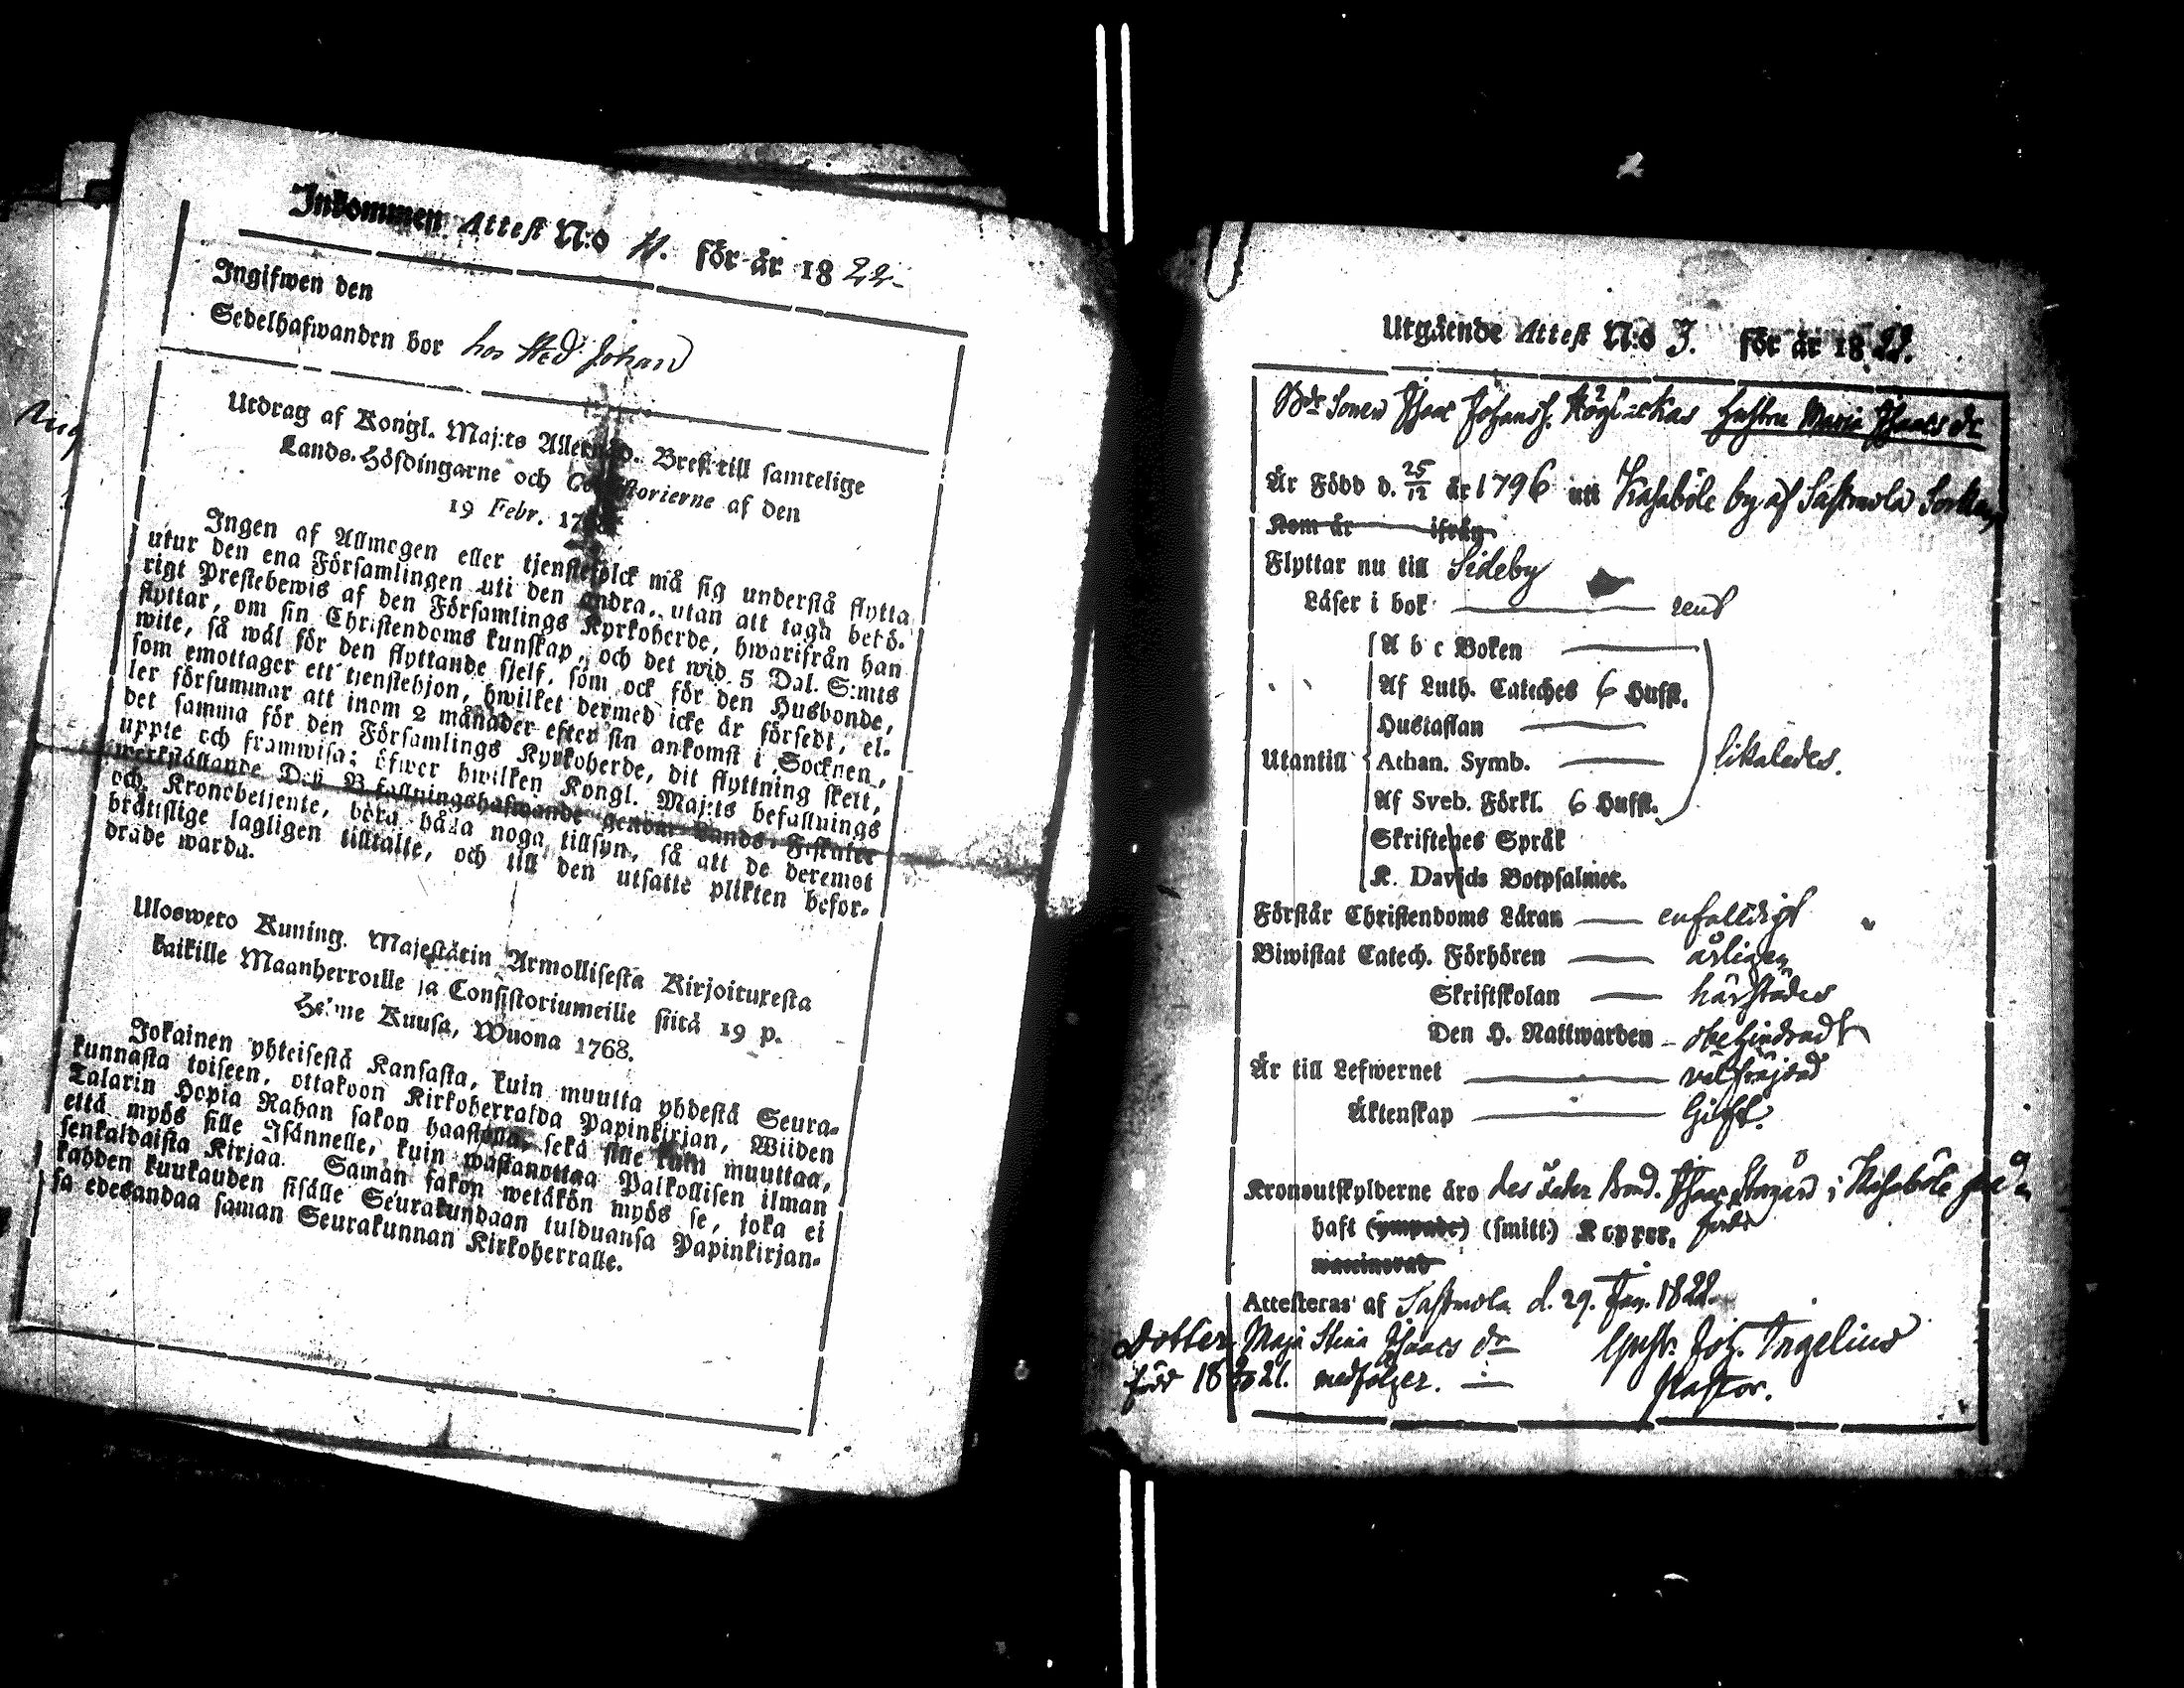 Inkommen Attest N:o 11. för år 1822.
Ingifwen den
Sedelhafwanden bor hos Johan
Utdrag af Kongl. Maj:ts Allernåd. Bref till samtelige
Lands-Höfdingarne och Consistorierne af den
19 Febr. 17
Ingen af Allmogen eller tjenstefolck må sig understå flytta
utur den ena Församlingen uti den andra, utan att taga behö-
rigt Prestebewis af den Församlings Kyrkoherde, hwarifrån han
flyttar, om sin Christendoms kunskap, och det wid 5 Dal. S:mts
wite, så wäl för den flyttande sjelf, som ock för den Husbonde,
som emottager ett tjenstehjon, hwilket dermed icke är försedt, el-
ler försummar att inom 2 månader efter sin ankomst i Socknen,
det samma för den Församlings Kyrkoherde, dit flyttning skett,
uppte och framwisa; öfwer hwilken Kongl. Maj:ts befallnings
werkställande Dess Befallningshafwande genom Lands-Fiskaler
och Kronobetjente, böra hålla noga tillsyn, så att de deremot
bråttslige lagligen tilltalte, och till den utsatte plikten befor-
drade warda.
Uloswero Kuning. Majestätin Armollisesta Kirjoituxesta
kaikille Maanherroille ja Consistoriumeille siitä 19 p.
Helme Kuusa, Wuona 1768.
Jokainen yhteisestä Kansasta, kuin muutta yhdestä Seura-
kunnasta toiseen, ottakoon Kirkoherralda Papinkirjan, Wiiden
Talarin Hopia Rahan sakon haastolla, sekä sille kuin muuttaa,
että myös sille Isännelle, kuin wastanottaa Palkollisen ilman
senkaldaista Kirjaa. Saman sakon wetäkön myös se, joka ei
kahden kuukauden sisälle Seurakundaan tulduansa Papinkirjan-
sa edesandaa saman Seurakunnan Kirkoherralle.
Utgående Attest N:o 3. för år 1822.
Bde Sonen Isaac Johanss. hustru Maria Isaacs dr
År Född d. 25/12 år 1796 uti Kasaböle by af Sastmola Sockn
Kom år ifrån
Flyttar nu till Sideby
Läser i bok rent
A b c Boken
Af Luth. Cateches 6 Hufst.
Hustaflan
Utantill Athan. Symb. likaledes.
Af Sveb. Förkl. 6 Hufst.
Skriftenes Språk
K. Davids Botpsalmer.
Förstår Christendoms Läran enfalldigt
Biwistat Catech. Förhören årligen
Skriftskolan härstädes
Den H. Nattwarden obehindradt
Är till Lefwernet välfräjdad
Äktenskap Gift.
Kronoutskylderne äro des Fader Bond. Isaac Storgård i Kasaböle
haft (ympade) (smitt.) Koppor.
waccinerad
Attesteras af Sastmola d. 29. Jan. 1822.
Dotter Maja Stina Isaacs dr Gust. Joh. Ingelius
född medföljer. Pastor.